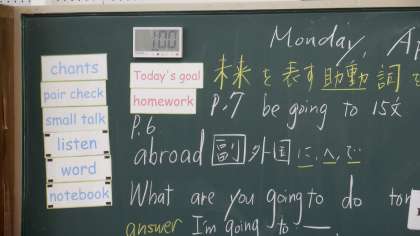 1:00
Monday, A
chants
pair check
small talk
listen
word
notebook
Today's goal
homework
未来を表す助動詞を
P.7 be going to 15文
P.6
abroad 副 外国に,へ,で
What are you going to do tom
answer I'm going to —.